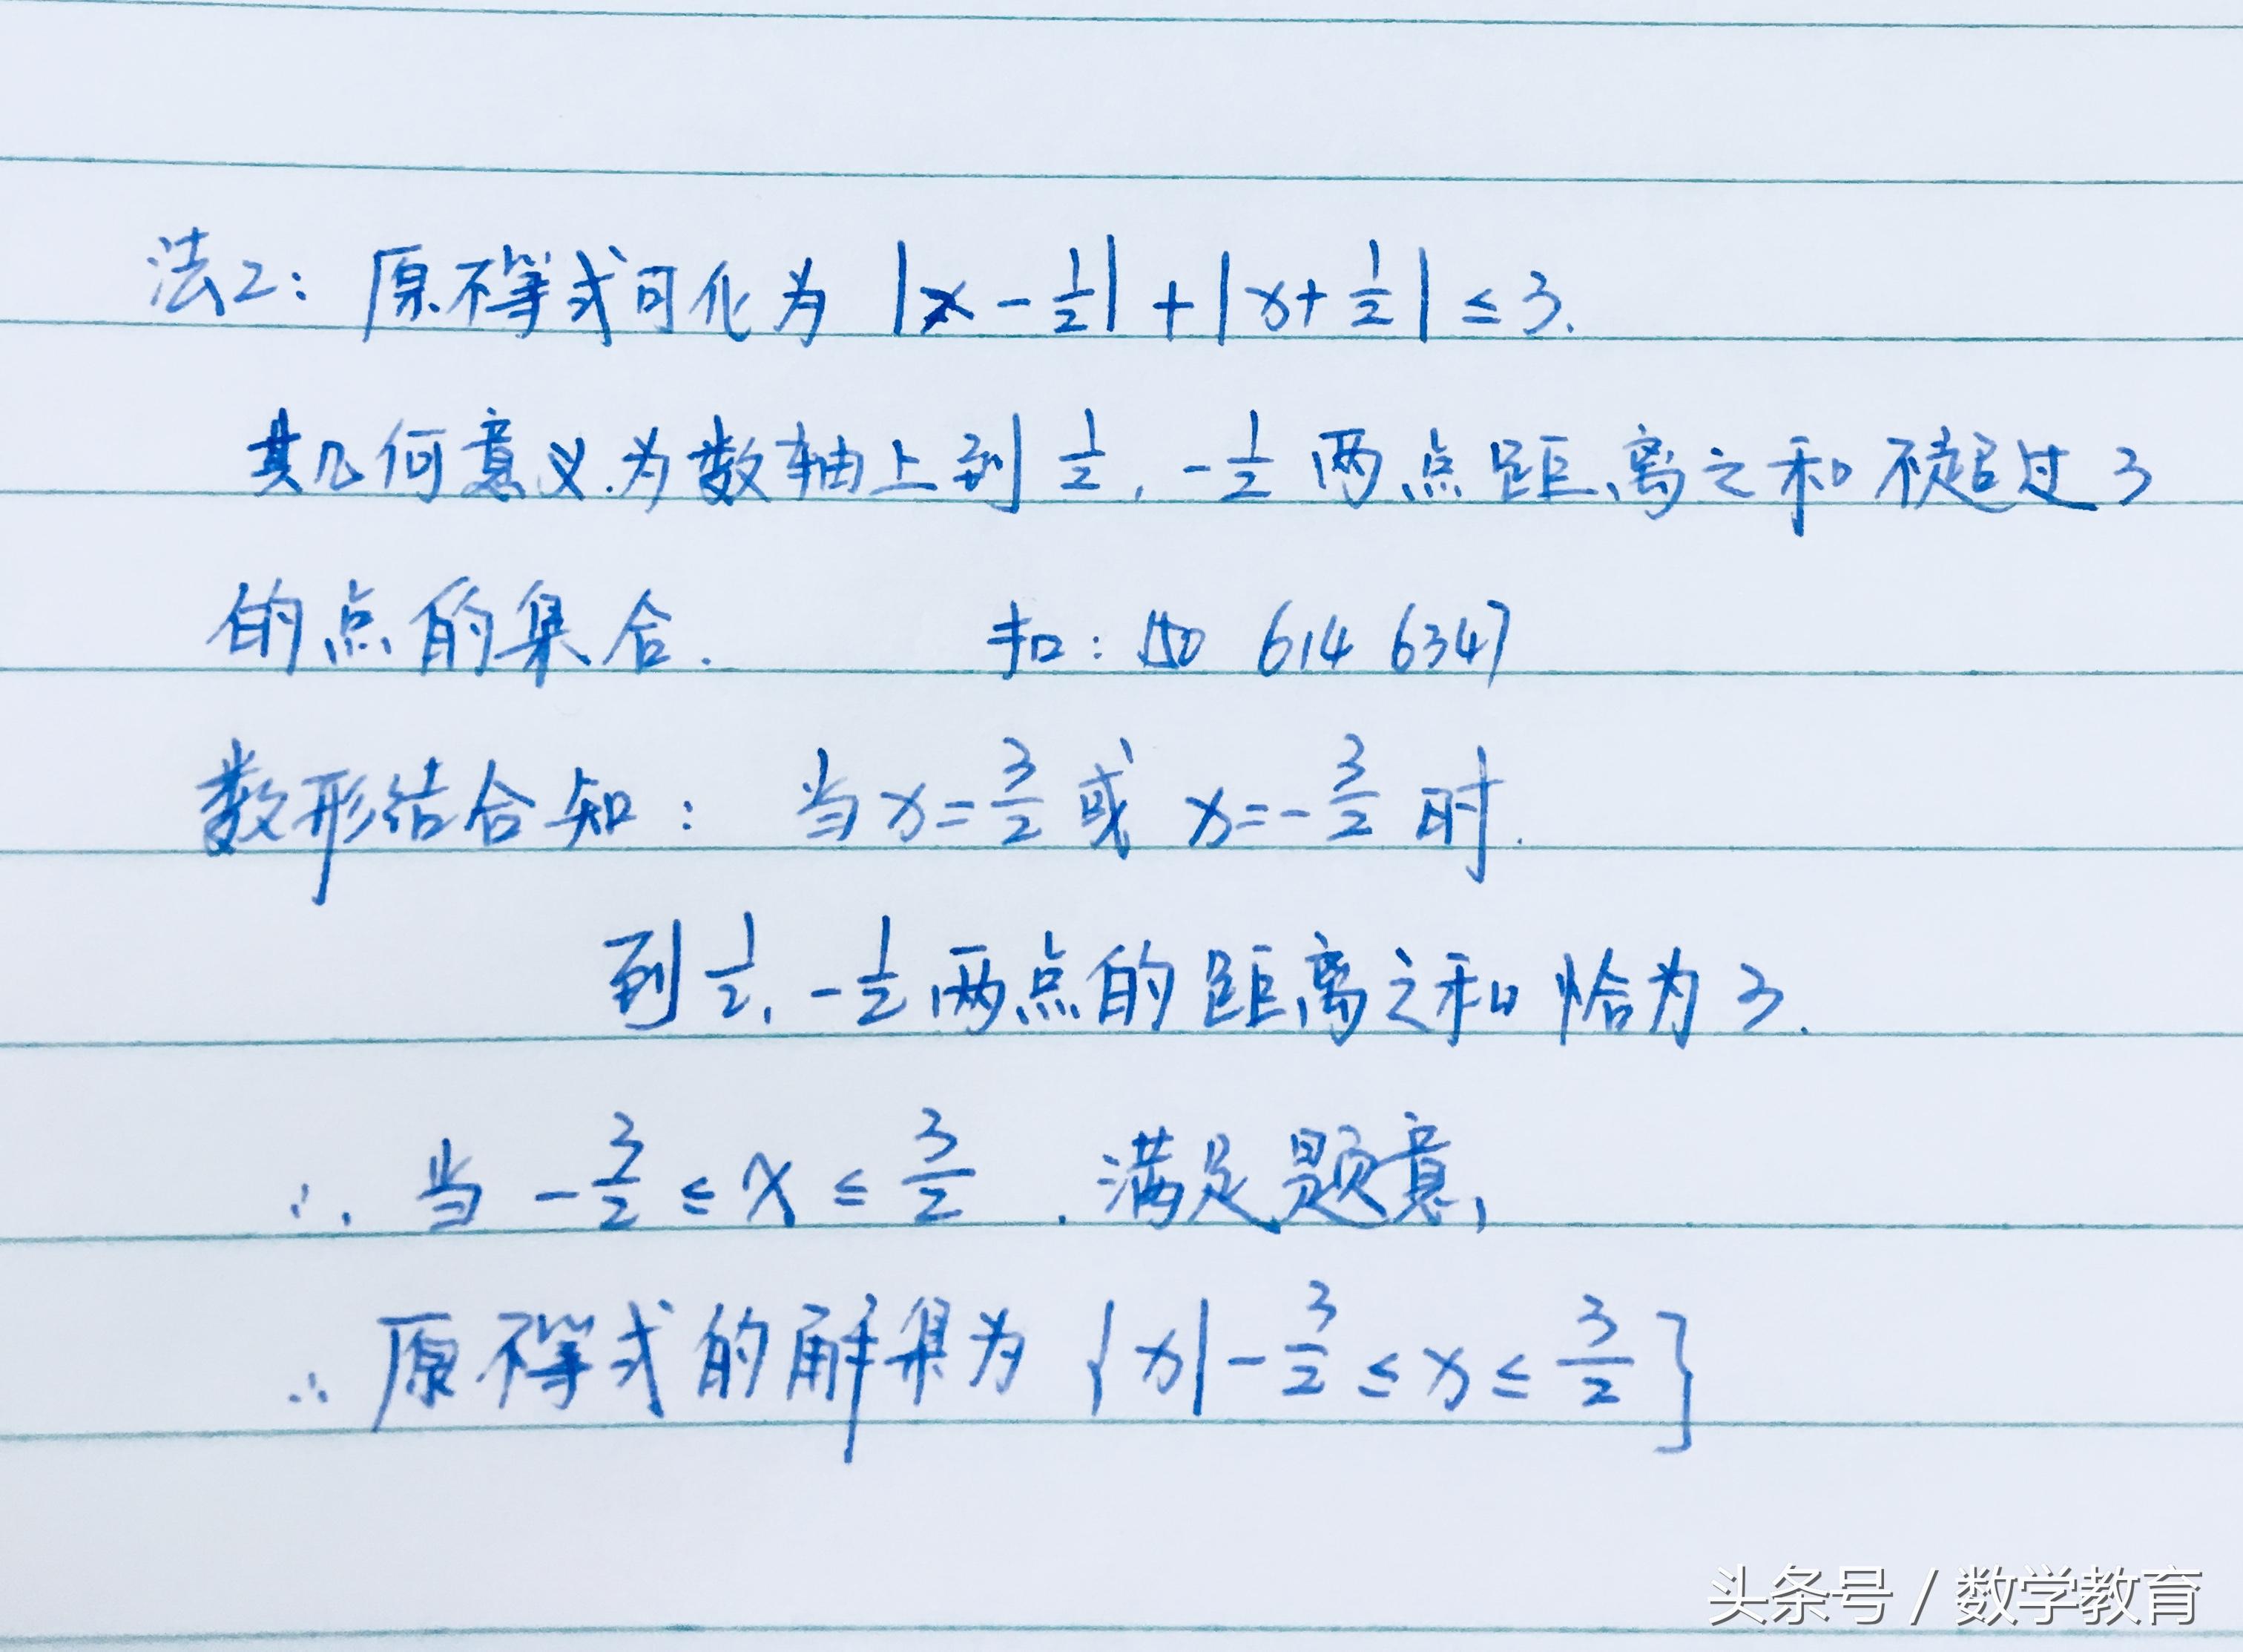 法2: 原不等式可化为 |x - 1/2| + |x + 1/2| ≤ 3.
其几何意义为数轴上到 1/2, -1/2 两点距离之和不超过3
的点的集合. 扣: 150 614 6347
数形结合知: 当 x = 3/2 或 x = -3/2 时.
到 1/2, -1/2 两点的距离之和恰为3.
∴ 当 -3/2 ≤ x ≤ 3/2 . 满足题意,
∴ 原不等式的解集为 {x| -3/2 ≤ x ≤ 3/2}
头条号 / 数学教育